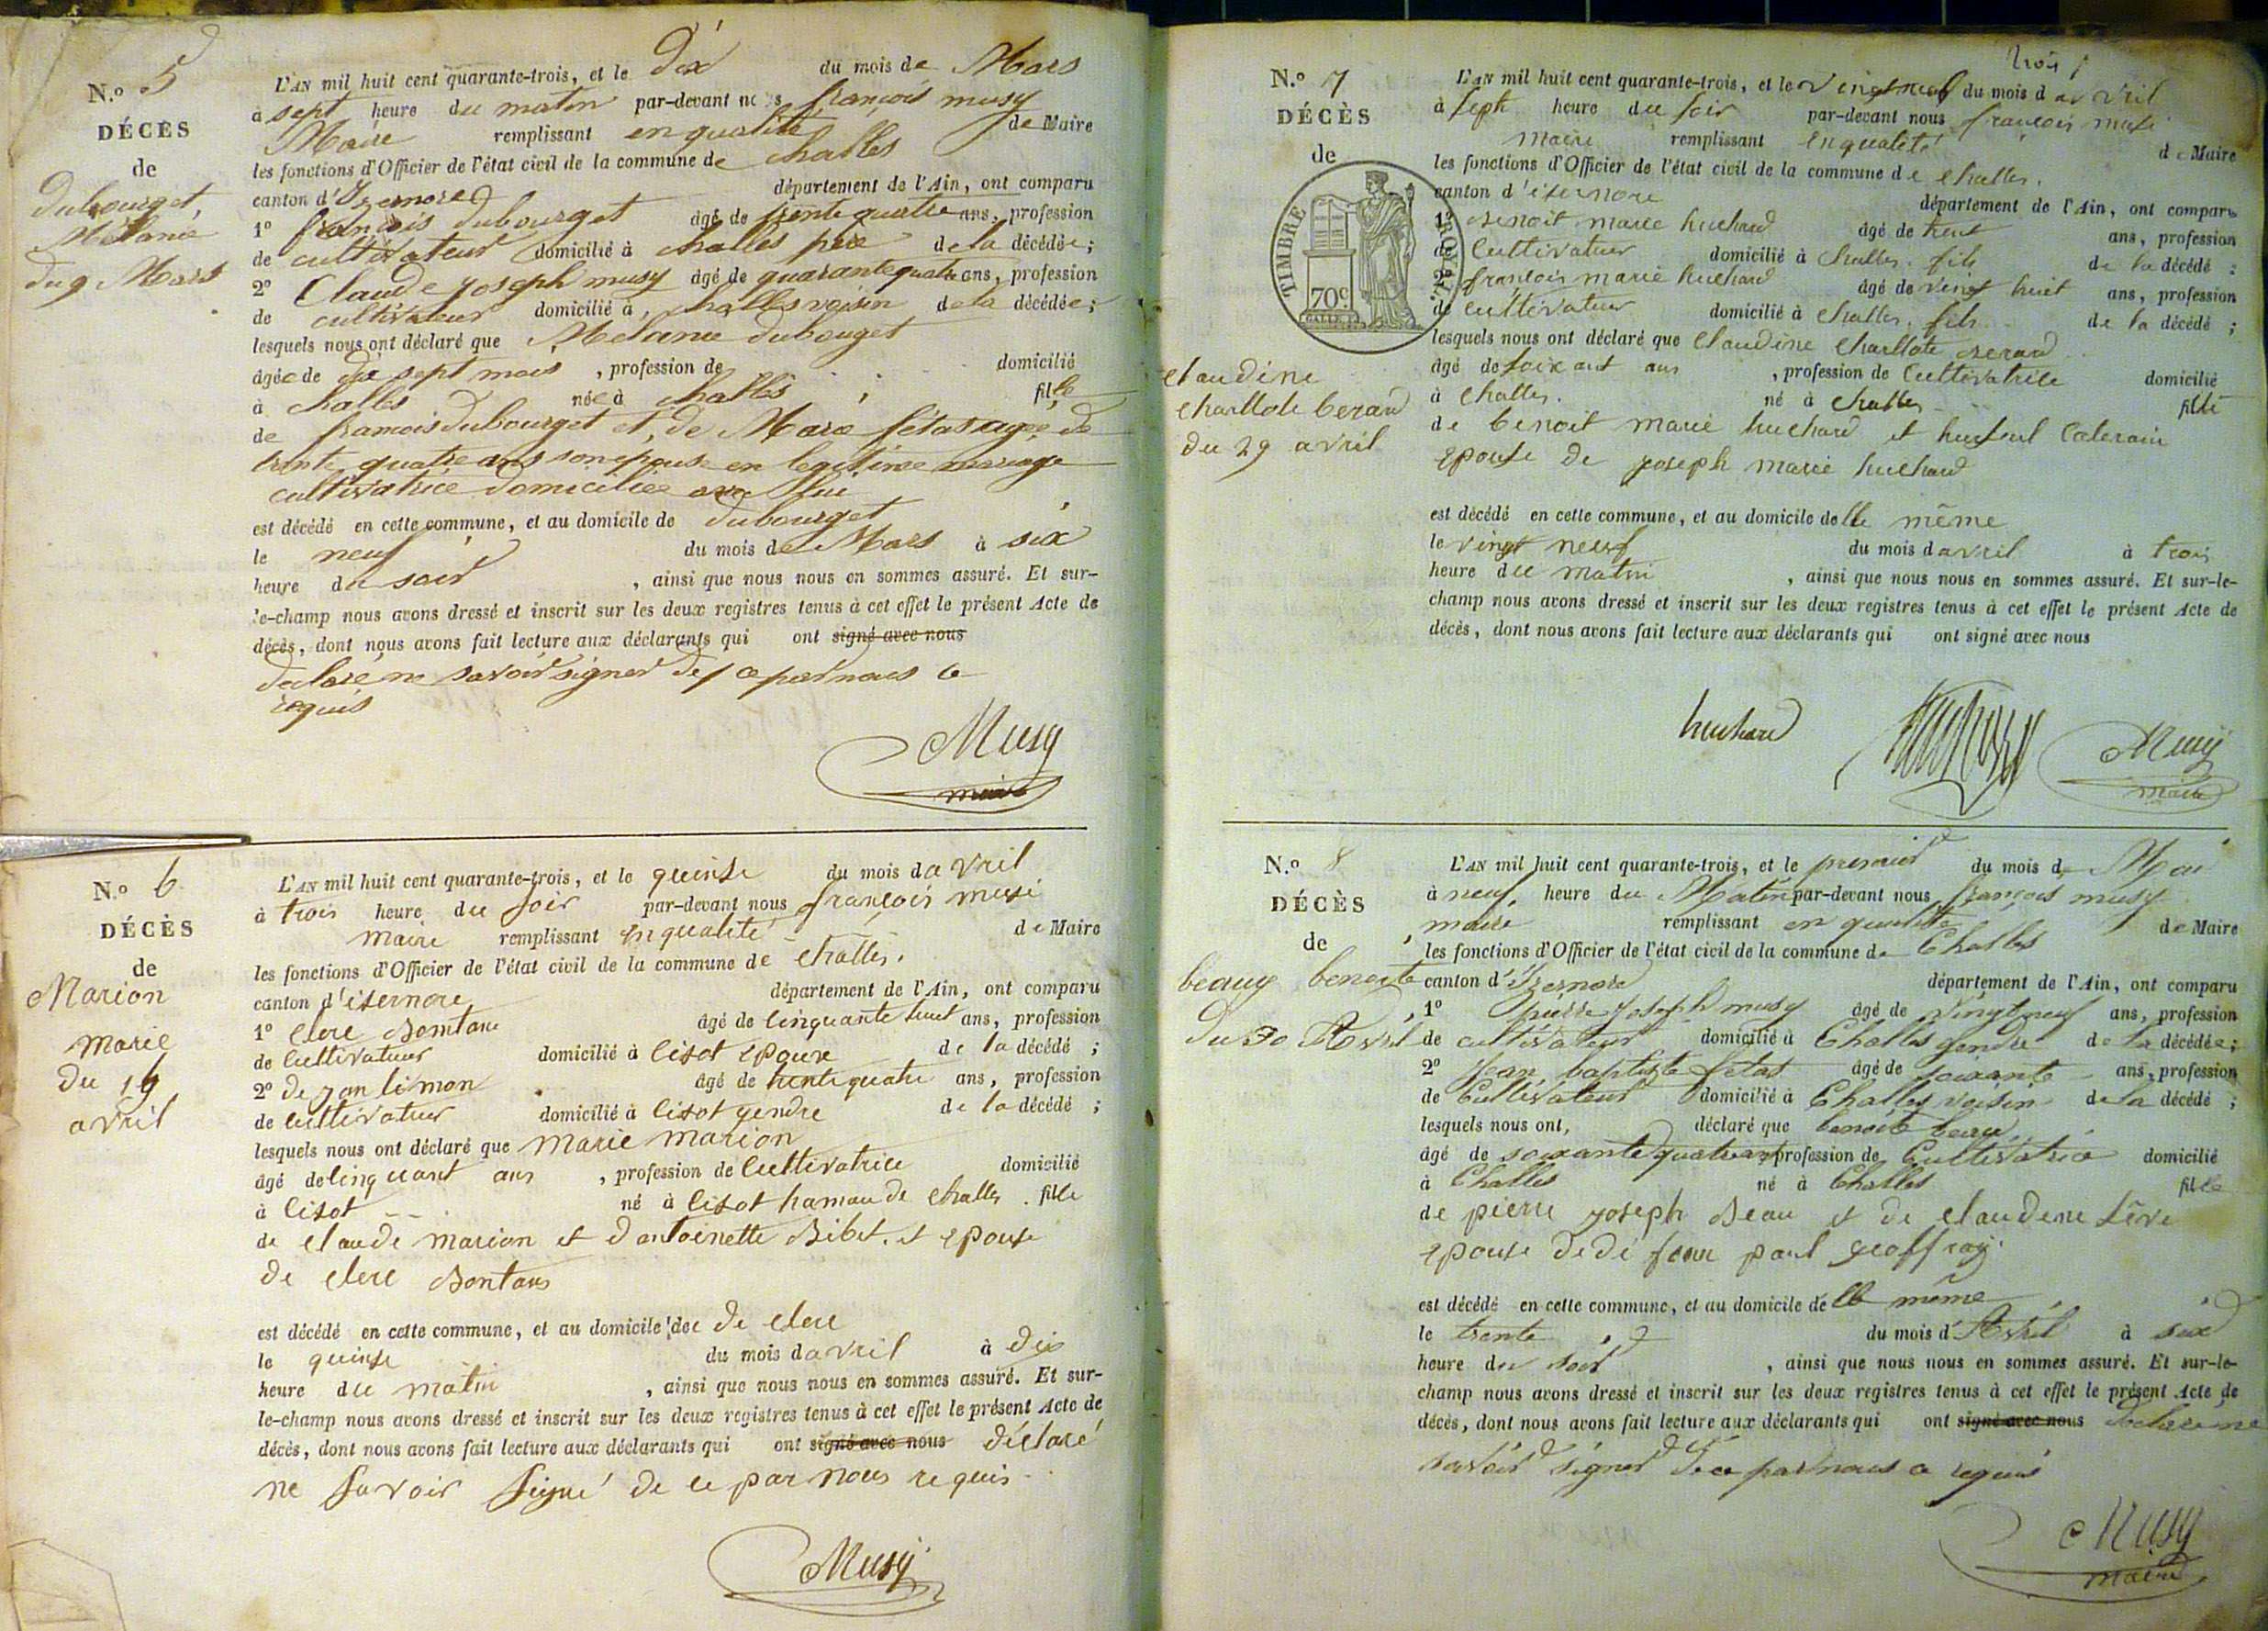 N.º 5
DÉCÈS
de
dubourget,
Mélanie
du 9 Mars
L'AN mil huit cent quarante-trois, et le dix du mois de Mars
à sept heure du matin par-devant nous françois musy
Maire remplissant en qualité de Maire
les fonctions d'Officier de l'état civil de la commune de challes
canton d'Izernore département de l'Ain, ont comparu
1º françois dubourget âgé de trente quatre ans, profession
de cultivateur domicilié à challes père de la décédée;
2º Claude joseph musy âgé de quarante quatre ans, profession
de cultivateur domicilié à, challes voisin de la décédée;
lesquels nous ont déclaré que Melanie dubouget
âgée de dix sept mois , profession de domicilié
à challes née à challes fille
de francois dubourget et, de Marie fétas agée de
trente quatre ans son epouse en legitime mariage
cultivatrice domiciliée avec lui
est décédé en cette commune, et au domicile de dubourget
le neuf du mois de Mars à six
heure du soir , ainsi que nous nous en sommes assuré. Et sur-
le-champ nous avons dressé et inscrit sur les deux registres tenus à cet effet le présent Acte de
décès, dont nous avons fait lecture aux déclarants qui ont signé avec nous
declaré ne savoir signer de ce par nous
requis
Musy
maire
N.º 6
DÉCÈS
de
Marion
marie
du
avril
L'AN mil huit cent quarante-trois, et le quinse du mois d avril
à trois heure du soir par-devant nous françois musi
maire remplissant en qualité de Maire
les fonctions d'Officier de l'état civil de la commune de challes.
canton d'isernore département de l'Ain, ont comparu
1º clere Bontans âgé de cinquante huit ans, profession
de cultivatuer domicilié à cisot epoux de la décédé ;
2º de jan limon âgé de trente quatre ans, profession
de cultivatuer domicilié à cisot gendre de la décédé ;
lesquels nous ont déclaré que marie marion
âgé de cinquant ans , profession de cultivatrice domicilié
à cisot né à cisot hamau de challes . fille
de claude marion et d antoinette Bibet. et epouse
de clere Bontans
est décédé en cette commune, et au domicile de de clere
le quinse du mois d avril à dix
heure du matin , ainsi que nous nous en sommes assuré. Et sur-
le-champ nous avons dressé et inscrit sur les deux registres tenus à cet effet le présent Acte de
décès, dont nous avons fait lecture aux déclarants qui ont signé avec nous déclaré
ne savoir signé de ce par nous requis
Musy
trois
N.º 7
DÉCÈS
de
TIMBRE ROYAL
70c.
claudine
charllote berard
du 29 avril
L'AN mil huit cent quarante-trois, et le vingt neuf du mois d avril
à seph heure du soir par-devant nous françois musi
maire remplissant en qualité de Maire
les fonctions d'Officier de l'état civil de la commune de challes.
canton d'isernore département de l'Ain, ont comparu
1º Benoit marie huchard âgé de trent ans, profession
de cultivatuer domicilié à challes. fils de la décédé ;
2º françois marie huchard âgé de vingt huit ans, profession
de cultivatuer domicilié à challes. fils de la décédé ;
lesquels nous ont déclaré que claudine charllote Berard
âgé de soixant ans , profession de cultivatrice domicilié
à challes. né à challes fille
de benoit marie huchard et
epouse de joseph marie huchard
est décédé en cette commune, et au domicile delle même
le vingt neuf du mois d avril à trois
heure du matin , ainsi que nous nous en sommes assuré. Et sur-le-
champ nous avons dressé et inscrit sur les deux registres tenus à cet effet le présent Acte de
décès, dont nous avons fait lecture aux déclarants qui ont signé avec nous
huchard Musy
maire
N.º 8
DÉCÈS
de
beaux benoite
du 30 Avril
L'AN mil huit cent quarante-trois, et le premier du mois de Mai
à neuf heure du Matin par-devant nous françois musy
maire remplissant en qualité de Maire
les fonctions d'Officier de l'état civil de la commune de Challes
canton d'Izernore département de l'Ain, ont comparu
1º pierre joseph musy âgé de vingt neuf ans, profession
de cultivateur domicilié à Challes gendre de la décédée;
2º jean baptiste fetas âgé de soixante ans, profession
de Cultivateur domicilié à Challes voisin de la décédé ;
lesquels nous ont, déclaré que benoite beau
âgé de soixante quatre ans, profession de Cultivatrice domicilié
à Challes né à Challes fille
de pierre joseph Beau et de claudine
epouse de paul geoffray
est décédé en cette commune, et au domicile delle même
le trente du mois d'Avril à six
heure du soir , ainsi que nous nous en sommes assuré. Et sur-le-
champ nous avons dressé et inscrit sur les deux registres tenus à cet effet le présent Acte de
décès, dont nous avons fait lecture aux déclarants qui ont signé avec nous declaré ne
savoir signer de ce par nous requis
Musy
maire